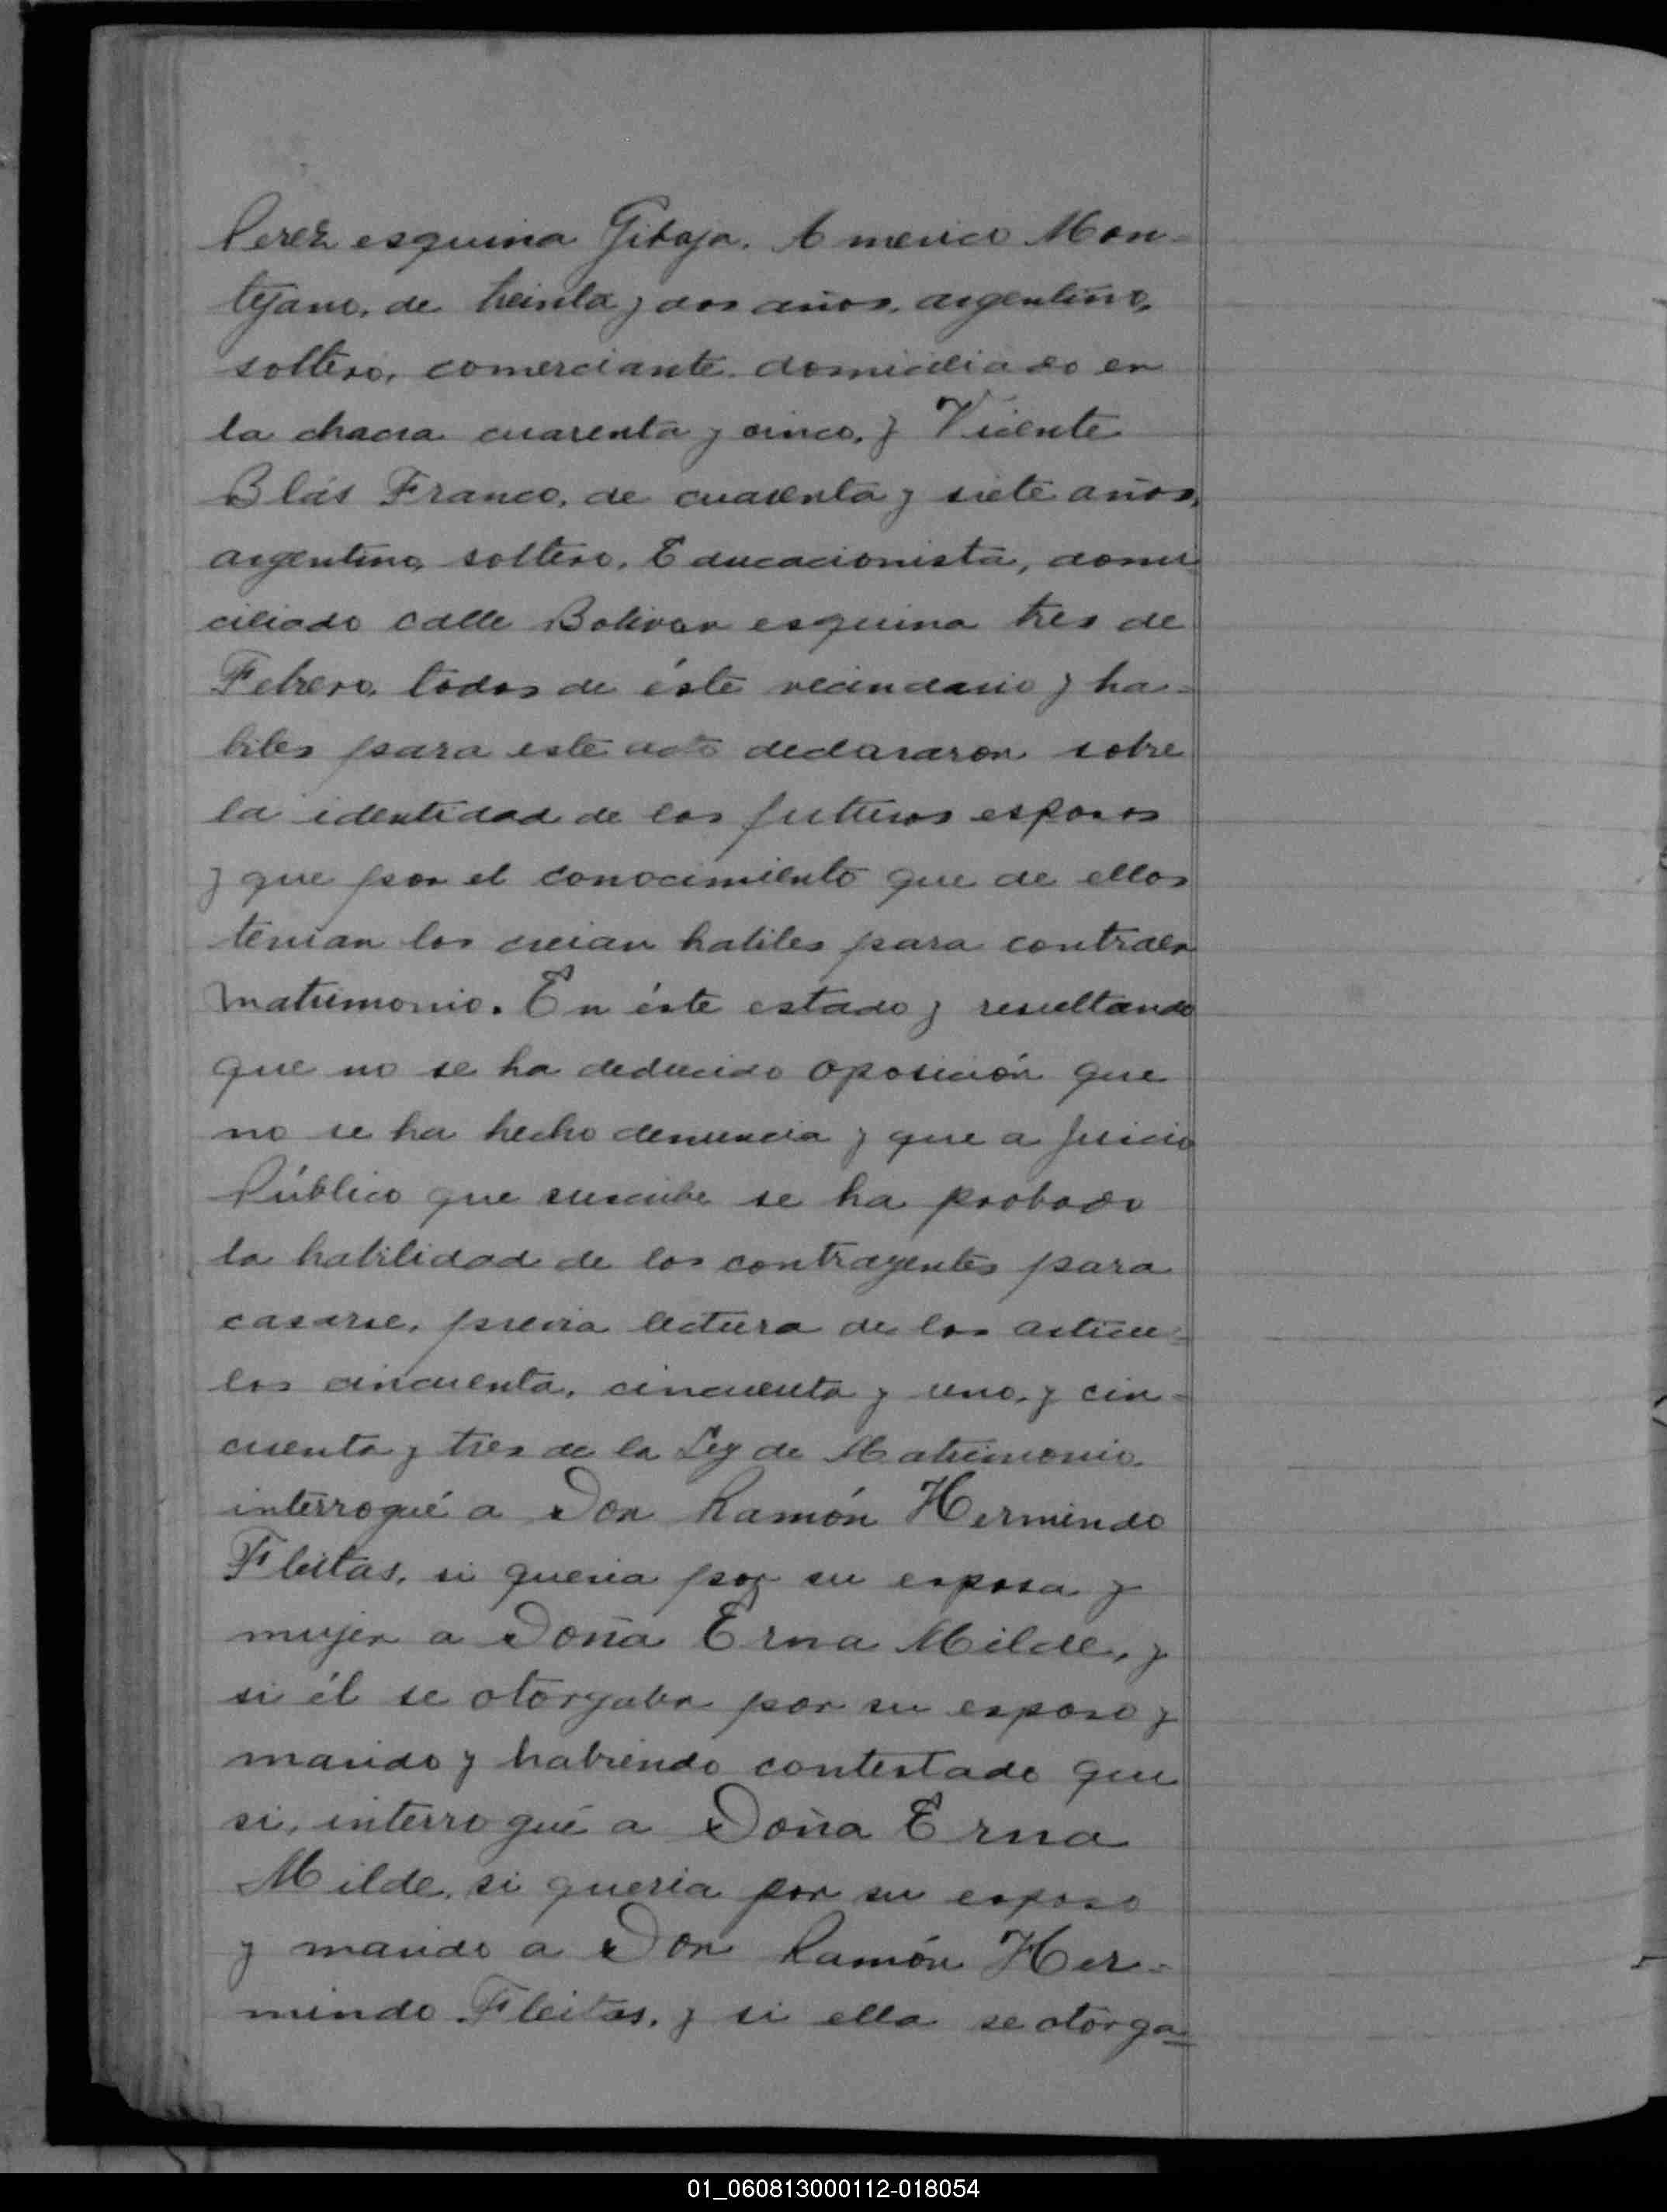 Perez esquina Gibaja. Americo Mon-
tejano, de treinta y dos años, argentino,
soltero, comerciante domiciliado en
la chacra cuarenta y cinco, y Vicente
Blás Franco, de cuarenta y siete años,
argentino, soltero, Educacionista, domi-
ciliado calle Bolivar esquina tres de
Febrero, todos de éste vecindario y ha-
biles para este acto declararon sobre
la identidad de los futuros esposos
y que por el conocimiento que de ellos
tenian los creian habiles para contraer
matrimonio. En éste estado y resultando
que no se ha deducido oposición que
no se ha hecho denuncia y que a juicio
Público que suscribe se ha probado
la habilidad de los contrayentes para
casarse, previa lectura de los articu-
los cincuenta, cincuenta y uno, y cin-
cuenta y tres de la Ley de Matrimonio.
interrogué a Don Ramón Hermindo
Fleitas, si queria por su esposa y
mujer a Doña Erna Milde, y
si él se otorgaba por su esposo y
marido y habiendo contestado que
si, interrogué a Doña Erna
Milde, si queria por su esposo
y marido a Don Ramón Her-
mindo Fleitas, y si ella se otorga=
01_060813000112-018054